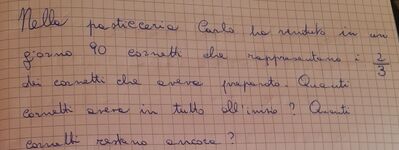 Nella pasticceria Carlo ha venduto in un
giorno 90 cornetti che rappresentano i 2/3
dei cornetti che aveva preparato. Quanti
cornetti aveva in tutto all'inizio? Quanti
cornetti restano ancora?